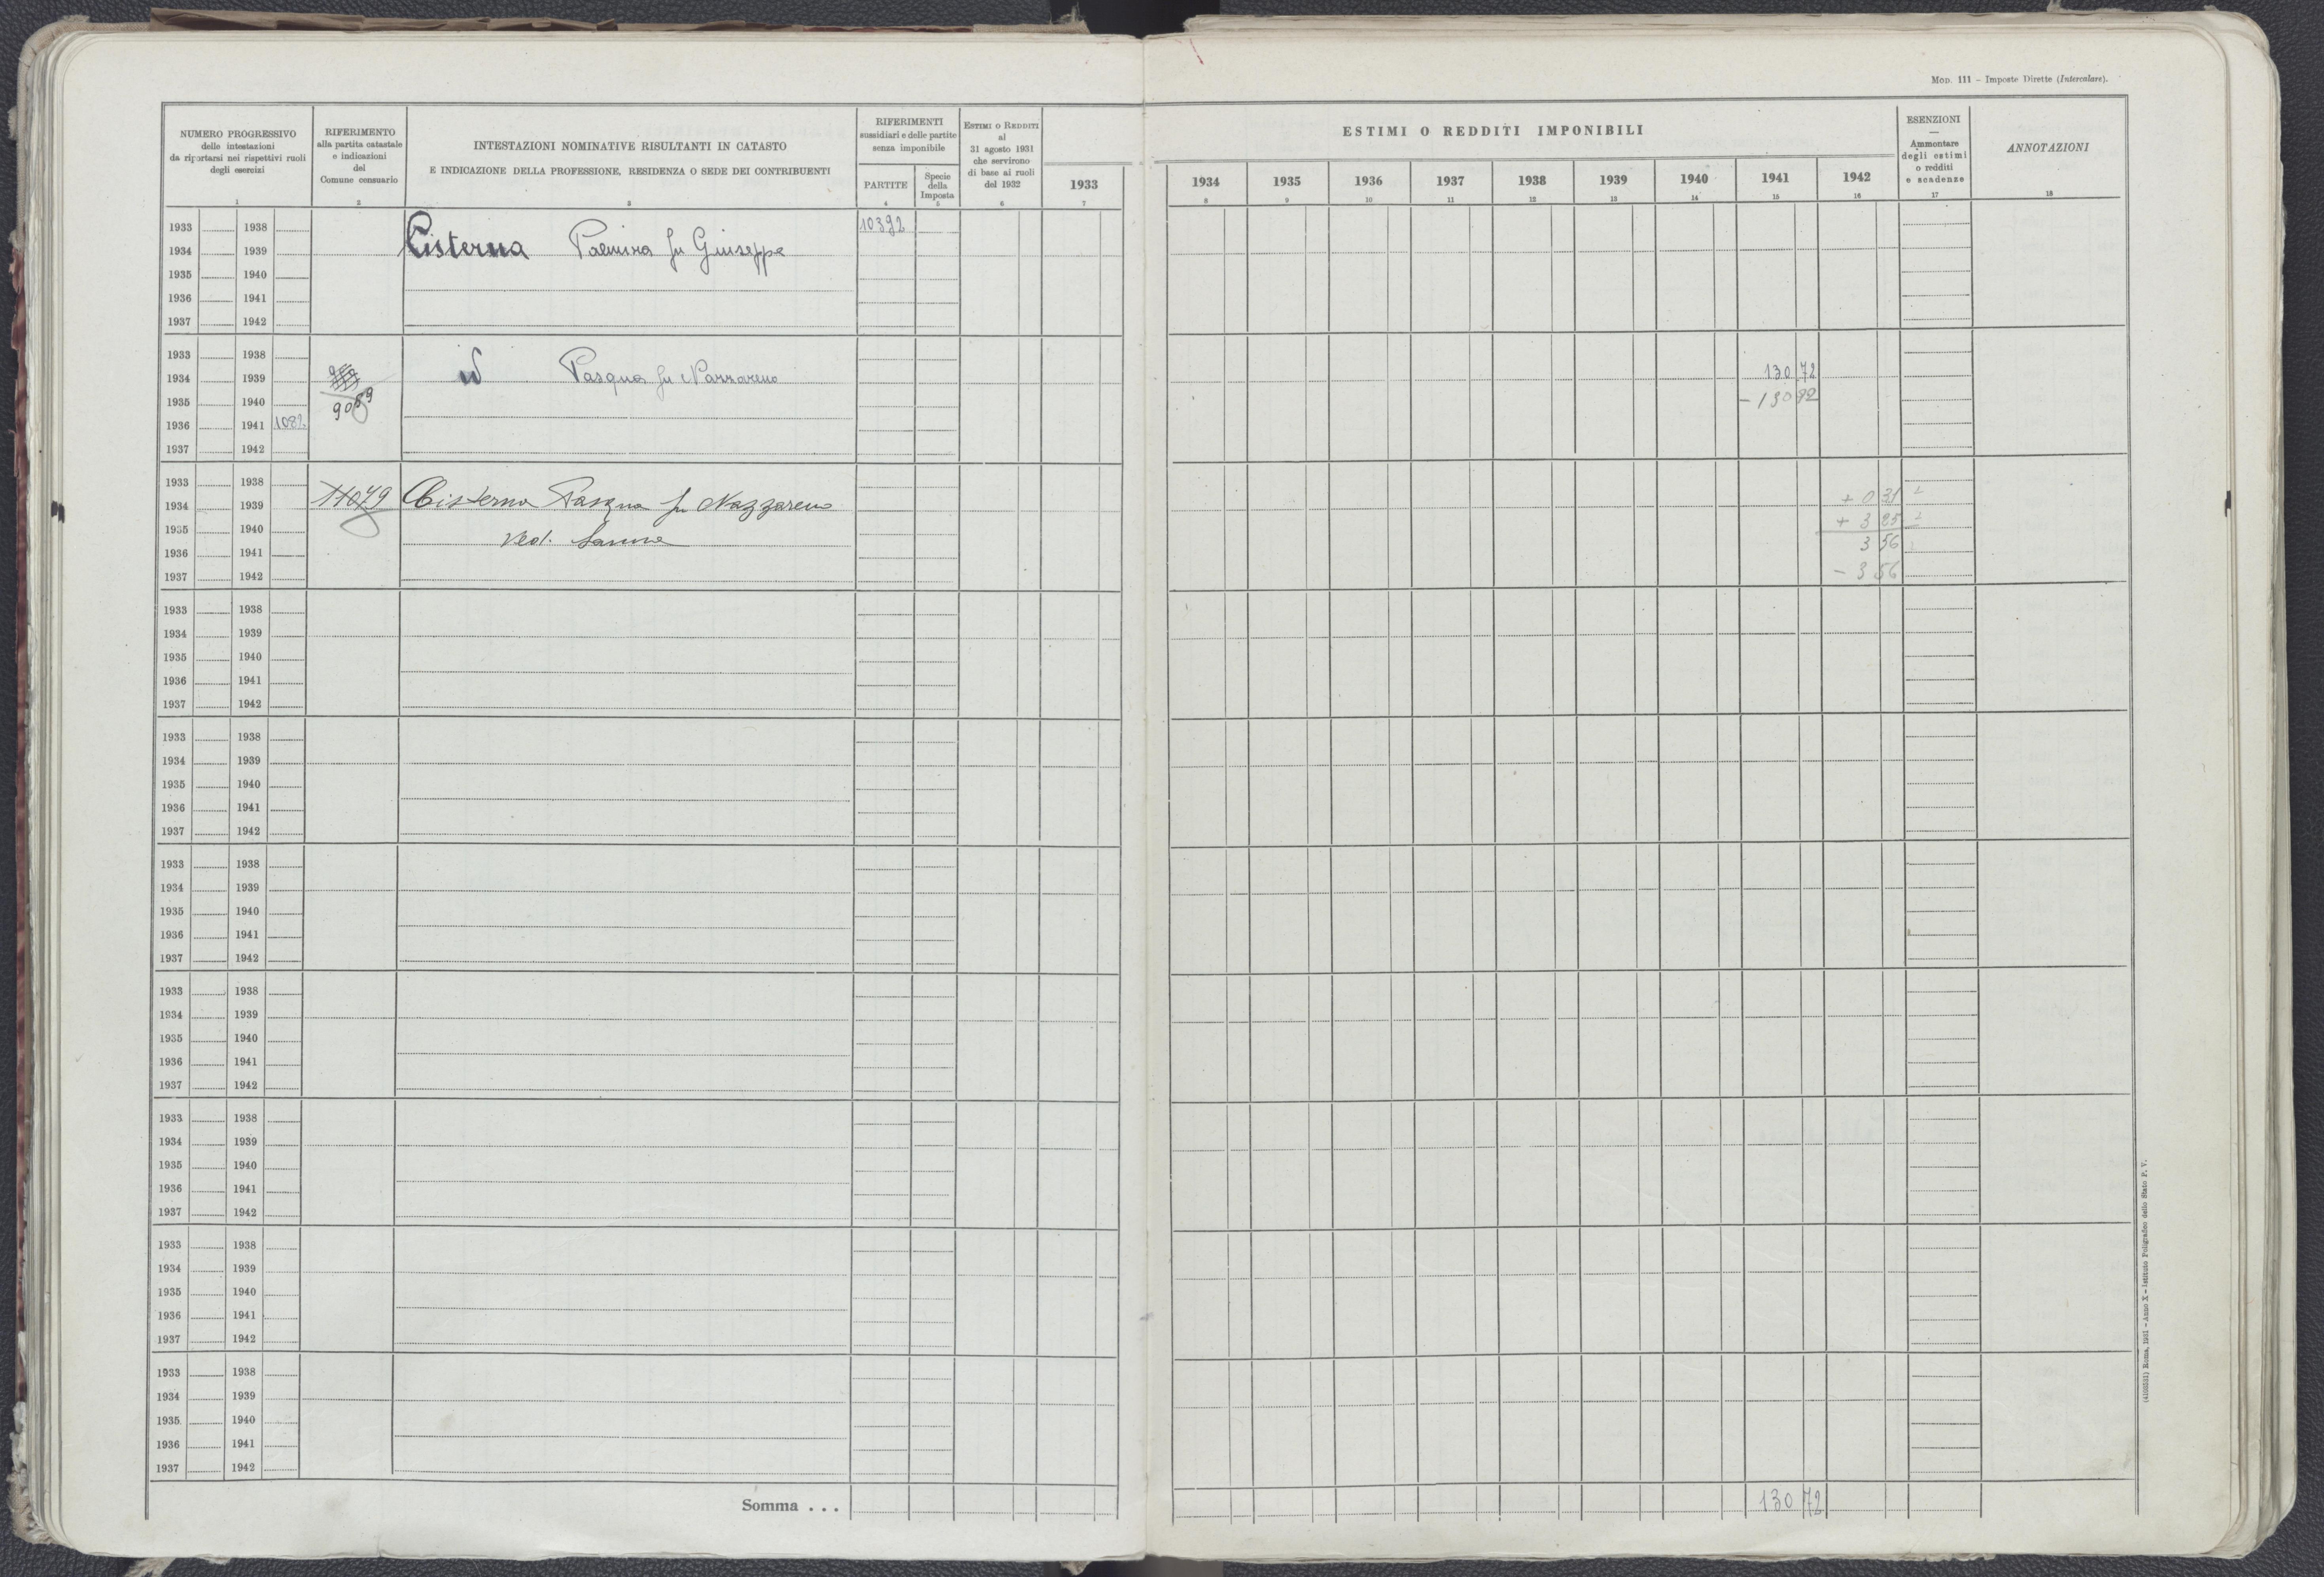 Mod. 111 - Imposte Dirette (Intercalare).
NUMERO PROGRESSIVO
delle intestazioni
da riportarsi nei rispettivi ruoli
degli esercizi
1
RIFERIMENTO
alla partita catastale
e indicazioni
del
Comune censuario
2
INTESTAZIONI NOMINATIVE RISULTANTI IN CATASTO
E INDICAZIONE DELLA PROFESSIONE, RESIDENZA O SEDE DEI CONTRIBUENTI
3
RIFERIMENTI
sussidiari e delle partite
senza imponibile
PARTITE
4
Specie
della
Imposta
5
ESTIMI O REDDITI
al
31 agosto 1931
che servirono
di base ai ruoli
del 1932
6
1933
7
ESTIMI O REDDITI IMPONIBILI
1934 1935 1936 1937 1938 1939 1940 1941 1942
8 9 10 11 12 13 14 15 16
ESENZIONI
—
Ammontare
degli estimi
o redditi
e scadenze
17
ANNOTAZIONI
18
1933 1938 10392
1934 1939 Cisterna Palmira fu Giuseppe
1935 1940
1936 1941
1937 1942
1933 1938
1934 1939 Pasqua fu Nazzareno 130 72
1935 1940 9089
1936 1941 1082
1937 1942
1933 1938
1934 1939 11079 Cisterna Pasqua fu Nazzareno + 0 31
1935 1940 Ved. + 3 25
1936 1941 3 56
1937 1942 - 3 56
1933 1938
1934 1939
1935 1940
1936 1941
1937 1942
1933 1938
1934 1939
1935 1940
1936 1941
1937 1942
1933 1938
1934 1939
1935 1940
1936 1941
1937 1942
1933 1938
1934 1939
1935 1940
1936 1941
1937 1942
1933 1938
1934 1939
1935 1940
1936 1941
1937 1942
1933 1938
1934 1939
1935 1940
1936 1941
1937 1942
1933 1938
1934 1939
1935 1940
1936 1941
1937 1942
Somma . . . 130 72
Roma, 1931 - Anno X - Istituto Poligrafico dello Stato P. V.